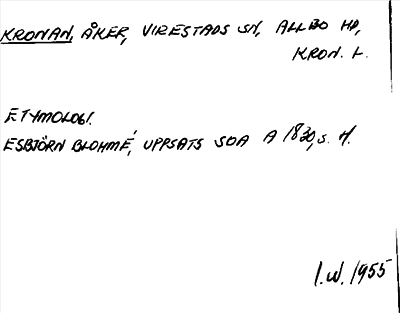 KRONAN, ÅKER, VIRESTADS SN, ALLBO HD,
KRON. L.
ETYMOLOGI.
ESBJÖRN BLOHMÉ, UPPSATS SOA A 1830, S. 4.
I.W. 1955